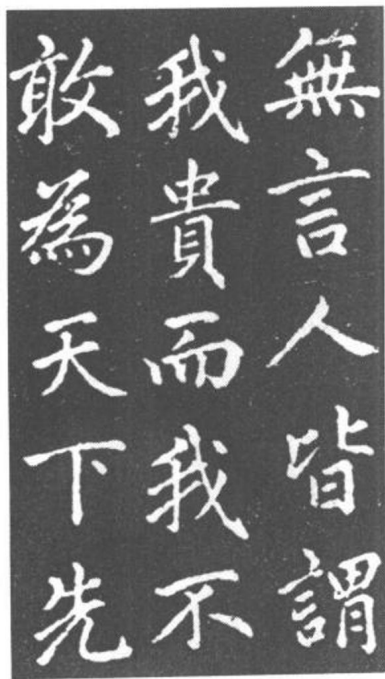 無言人皆謂
我貴而我不
敢為天下先